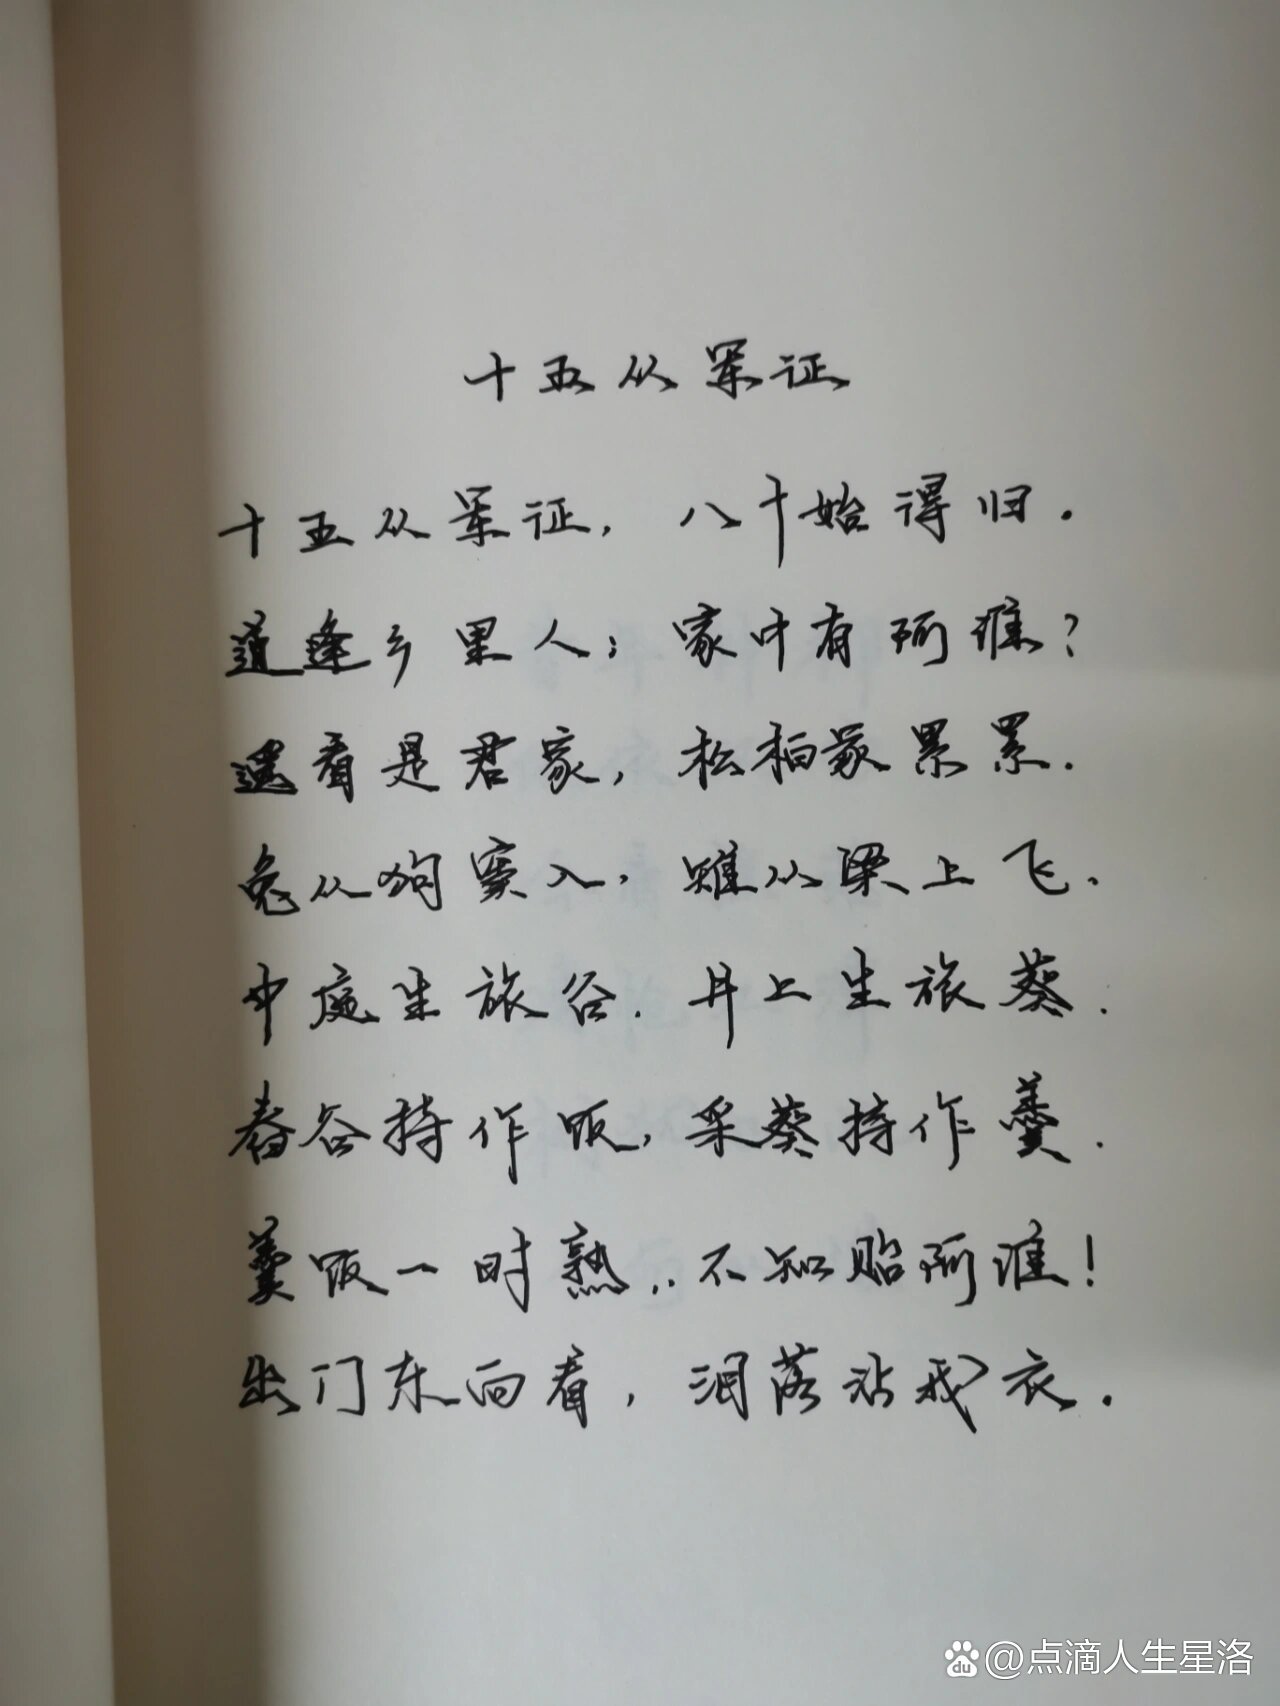 十五从军证
十五从军证，八十始得归.
道逢乡里人；家中有阿谁？
遥看是君家，松柏冢累累.
兔从狗窦入，雉从梁上飞.
中庭生旅谷.井上生旅葵.
舂谷持作饭，采葵持作羹.
羹饭一时熟..不知贻阿谁！
出门东向看，泪落沾我衣.
@点滴人生星洛